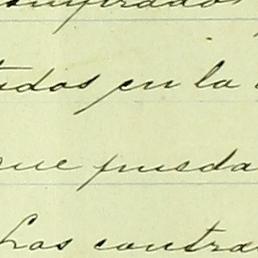 tidos en la
que pueda
Las contra